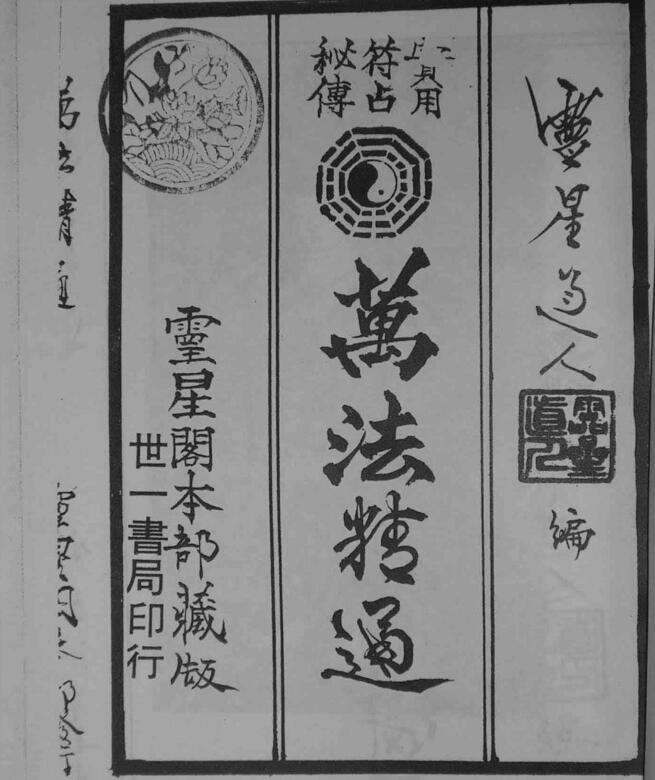 靈星道人
靈星道人
編
用
符占
秘傳
萬法精通
靈星閣本部藏版
世一書局印行